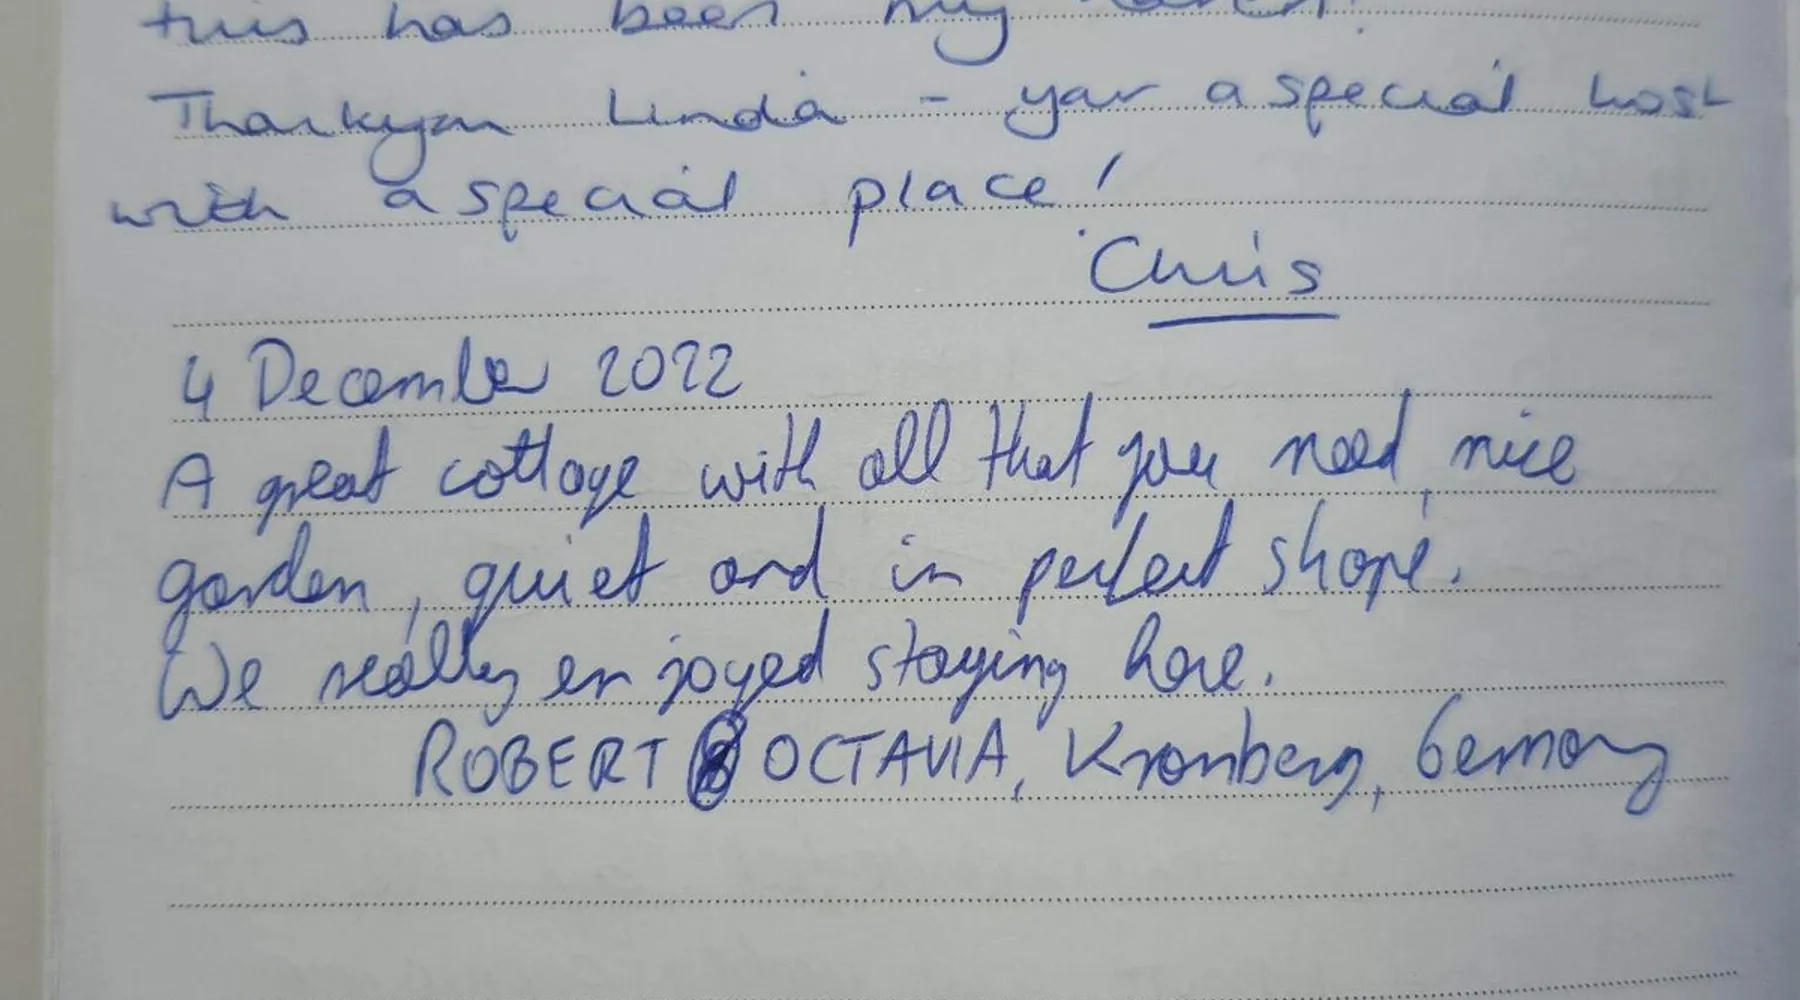 this has been my haven!
Thankyou Linda - your a special host
with a special place!
Chris
4 December 2022
A great cottage with all that you need, nice
garden, quiet and in perfect shape.
We really enjoyed staying here.
ROBERT & OCTAVIA, Kronberg, Germany